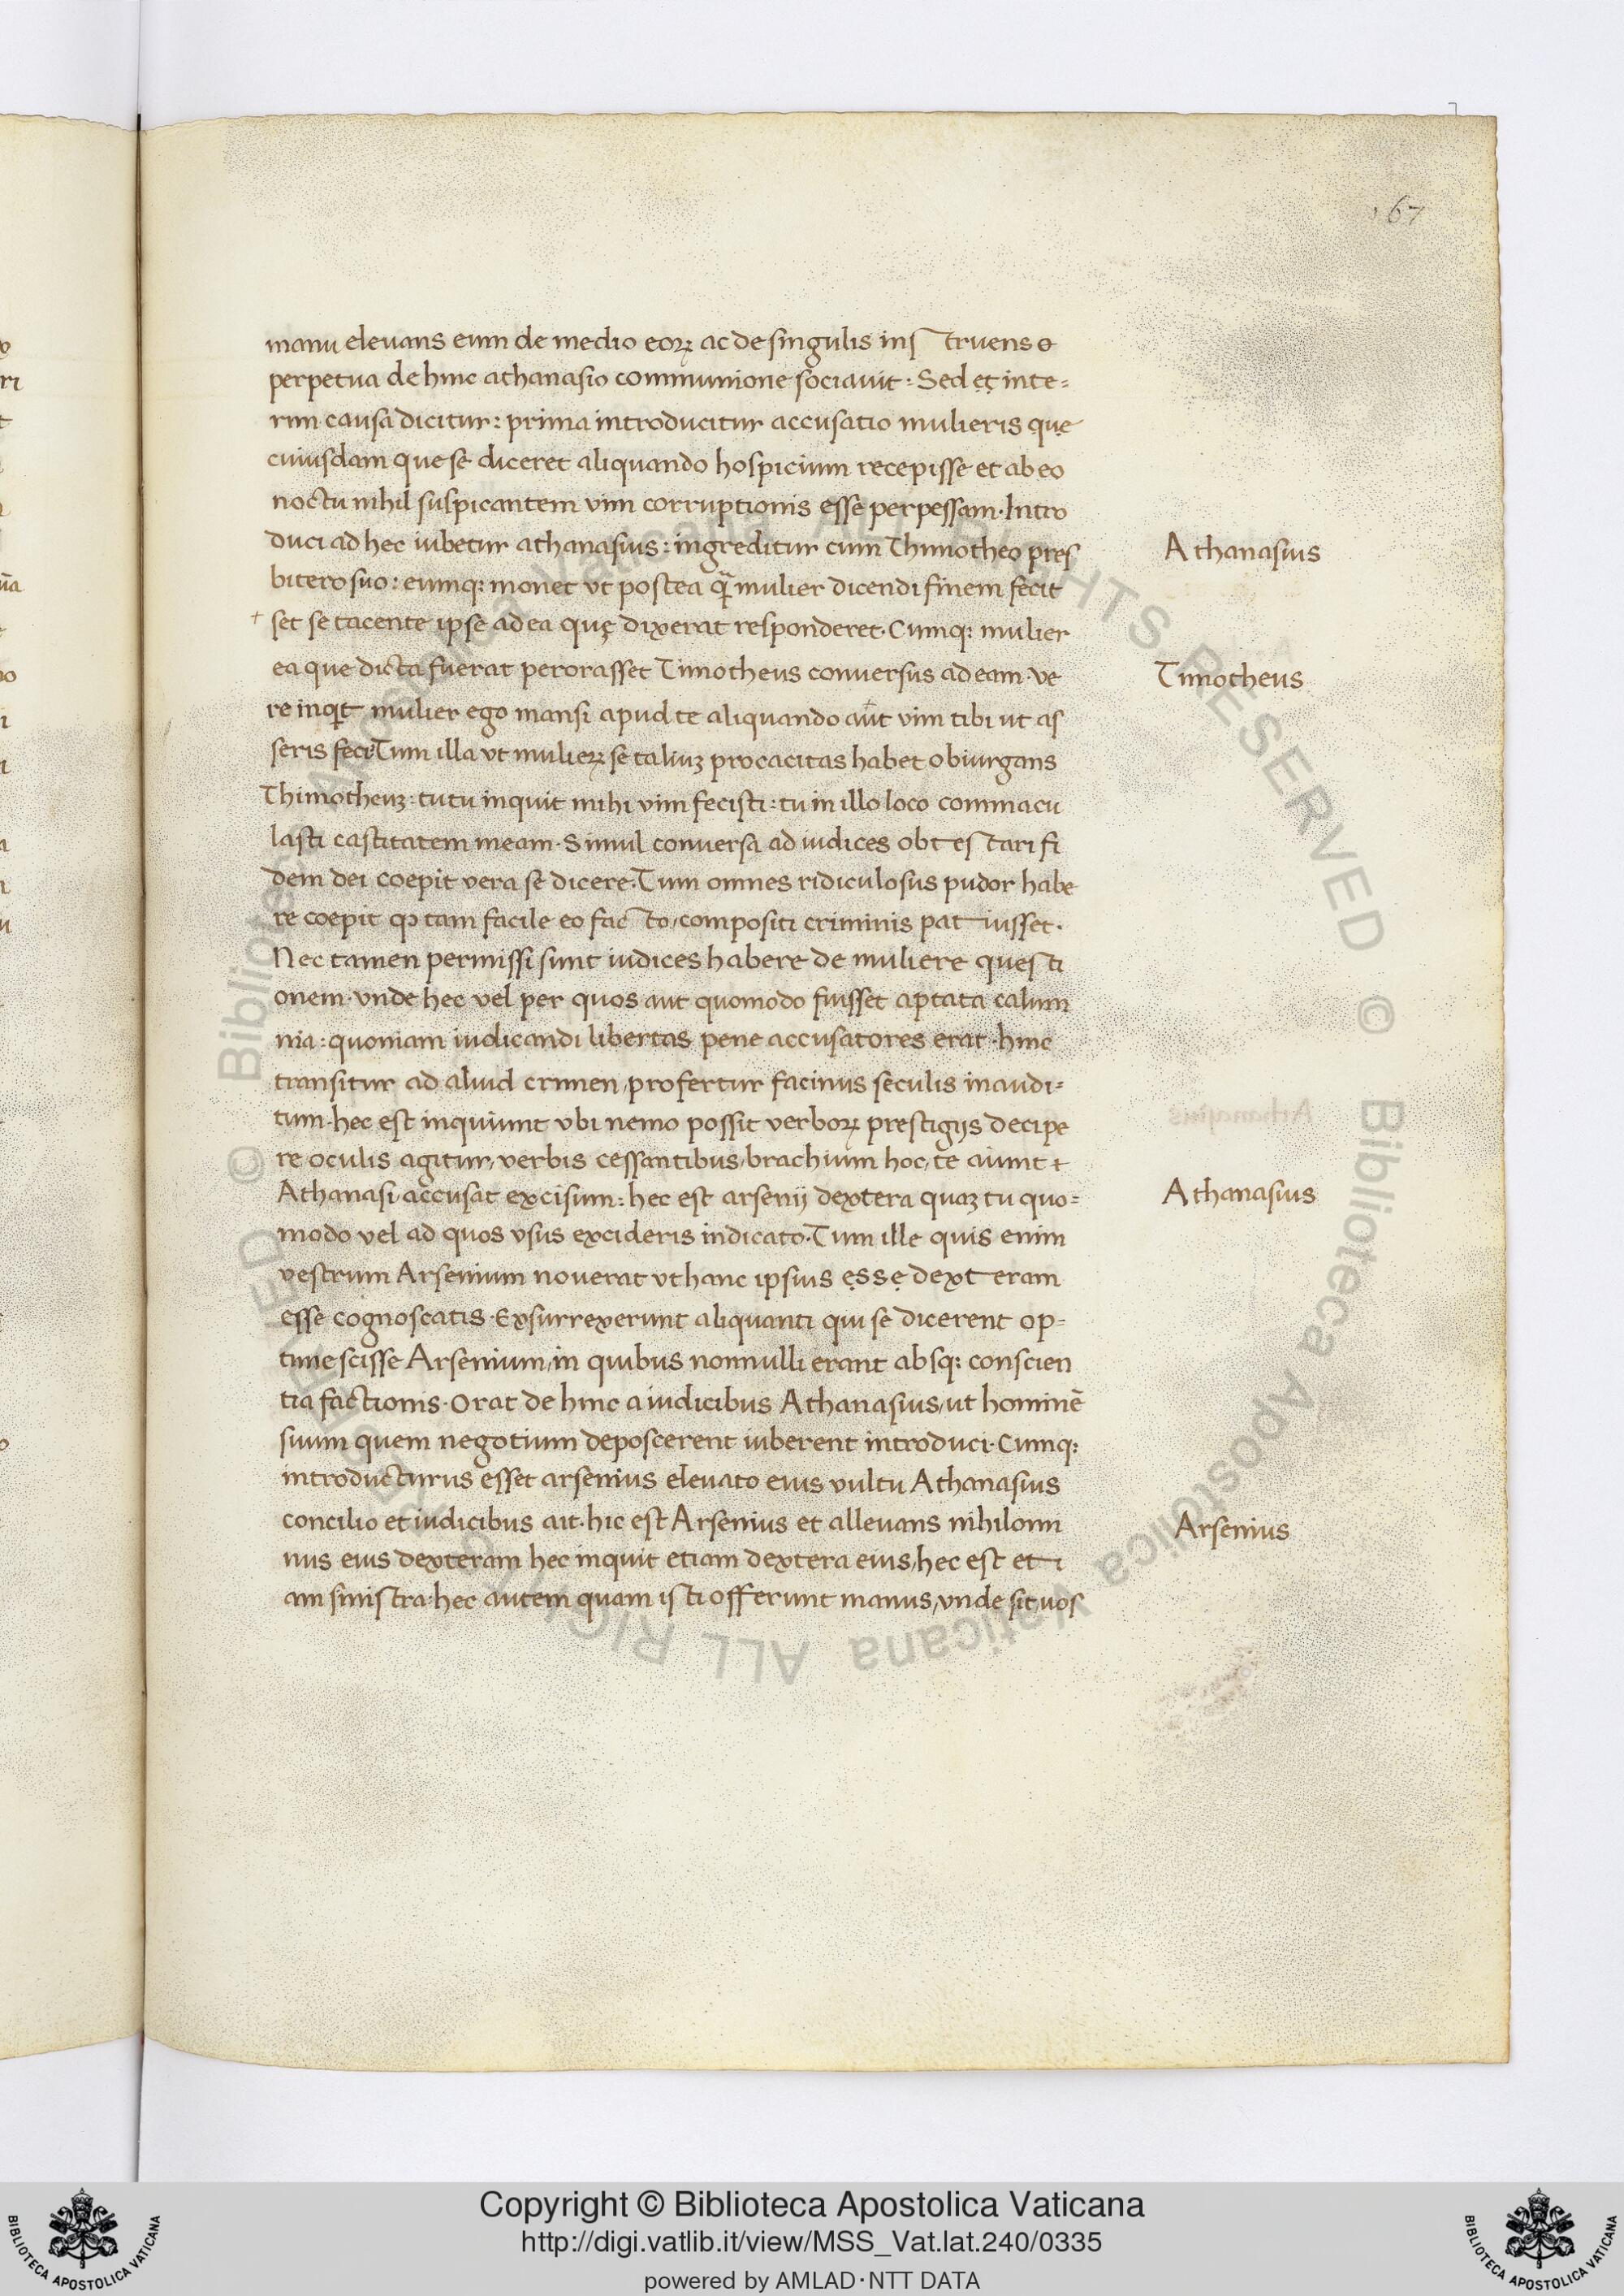 167
manu elevans eum de medio eoꝝ ac de singulis ins truens e
perpetua dehinc athanasio communione sociavit: Sed et inte=
rim causa dicitur: prima introducitur accusatio mulieris que
cuiusdam que se diceret aliquando hospicium recepisse et ab eo
noctu nihil suspicantem vim corruptionis esse perpessam. Intro
duci ad hec iubetur athanasius: ingreditur cum Thimotheo pres
Athanasius
bitero suo: eumqꝫ monet vt postea q̃ mulier dicendi finem fecis
+ set se tacente ipse ad ea quę dixerat responderet. Cumqꝫ mulier
ea que dicta fuerat perorasset Timotheus conversus ad eam. ve
Timotheus
re inqͥt mulier ego mansi apud te aliquando aut vim tibi ut as
seris feci Tum illa vt mulieꝝ se taliuꝫ procacitas habet obiurgans
Thimotheuꝫ: tu tu inquit mihi vim fecisti: tu in illo loco commacu
lasti castitatem meam. Simul conversa ad iudices obtes tari fi
dem dei coepit vera se dicere. Tum omnes ridiculosus pudor habe
re coepit ꝙ tam facile eo fac to, compositi criminis pat uisset.
Nec tamen permissi sunt iudices habere de muliere questi
onem. vnde hec vel per quos aut quomodo fuisset aptata calum
nia: quoniam iudicandi libertas pene accusatores erat. hinc
transitur ad aliud crimen, profertur facinus seculis inaudi=
tum. hec est inquiunt vbi nemo possit verboꝝ prestigijs decipe
re oculis agitur, verbis cessantibus, brachium hoc, te aiunt
Athanasi accusat excisum: hec est arsenij dextera quaꝫ tu quo=
Athanasius
modo vel ad quos vsus excideris indicato. Tum ille quis enim
vestrum Arsenium noverat vt hanc ipsius ẹsṣẹ dext eram
esse cognoscatis. Exsurrexerunt aliquanti qui se dicerent op=
time scisse Arsenium, in quibus nonnulli erant absqꝫ conscien
tia factionis. Orat de hinc a iudicibus Athanasius, ut hominē
suum quem negotium deposcerent iuberent introduci. Cumqꝫ
introducturus esset arsenius elevato eius vultu Athanasius
concilio et iudicibus ait. hic est Arsenius et allevans nihilomi
Arsenius
nus eius dexteram hec inquit etiam dextera eius, hec est et i
am sinistra: hec autem quam isti offerunt manus, vnde sit, uos
Copyright © Biblioteca Apostolica Vaticana
http://digi.vatlib.it/view/MSS_Vat.lat.240/0335
powered by AMLAD·NTT DATA
BIBLIOTECA APOSTOLICA VATICANA
BIBLIOTECA APOSTOLICA VATICANA
© Biblioteca Apostolica Vaticana ALL RIGHTS RESERVED © Biblioteca Apostolica Vaticana ALL RIGHTS RESERVED